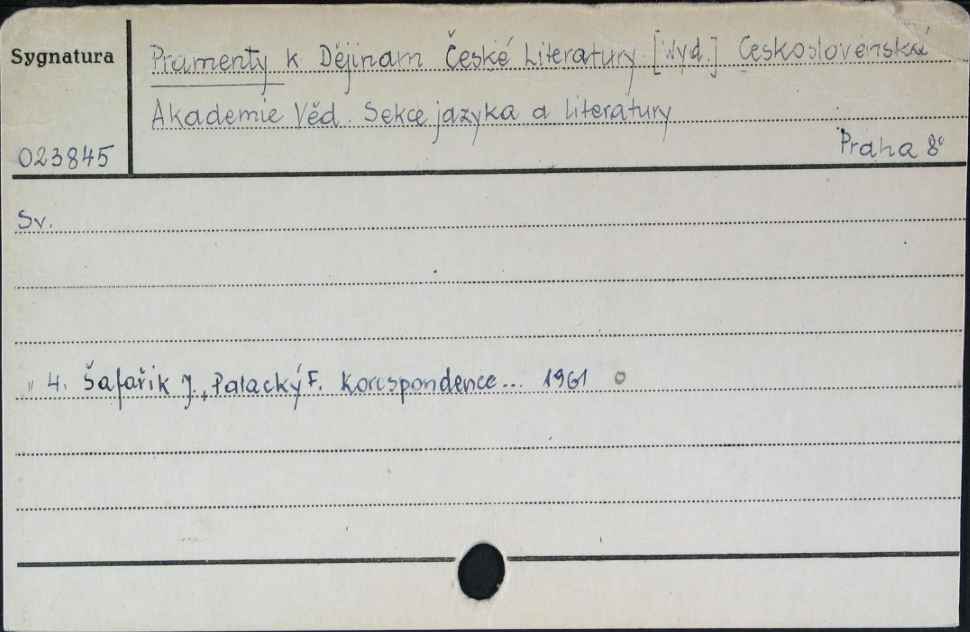 Sygnatura
Pramenty k Dějinam České Literatury. [Wyd.] Československá
Akademie Věd. Sekce jazyka a literatury
023845
Praha 8°
Sv.
" 4. Šafařik J., Palacký F. Korespondence... 1961 o